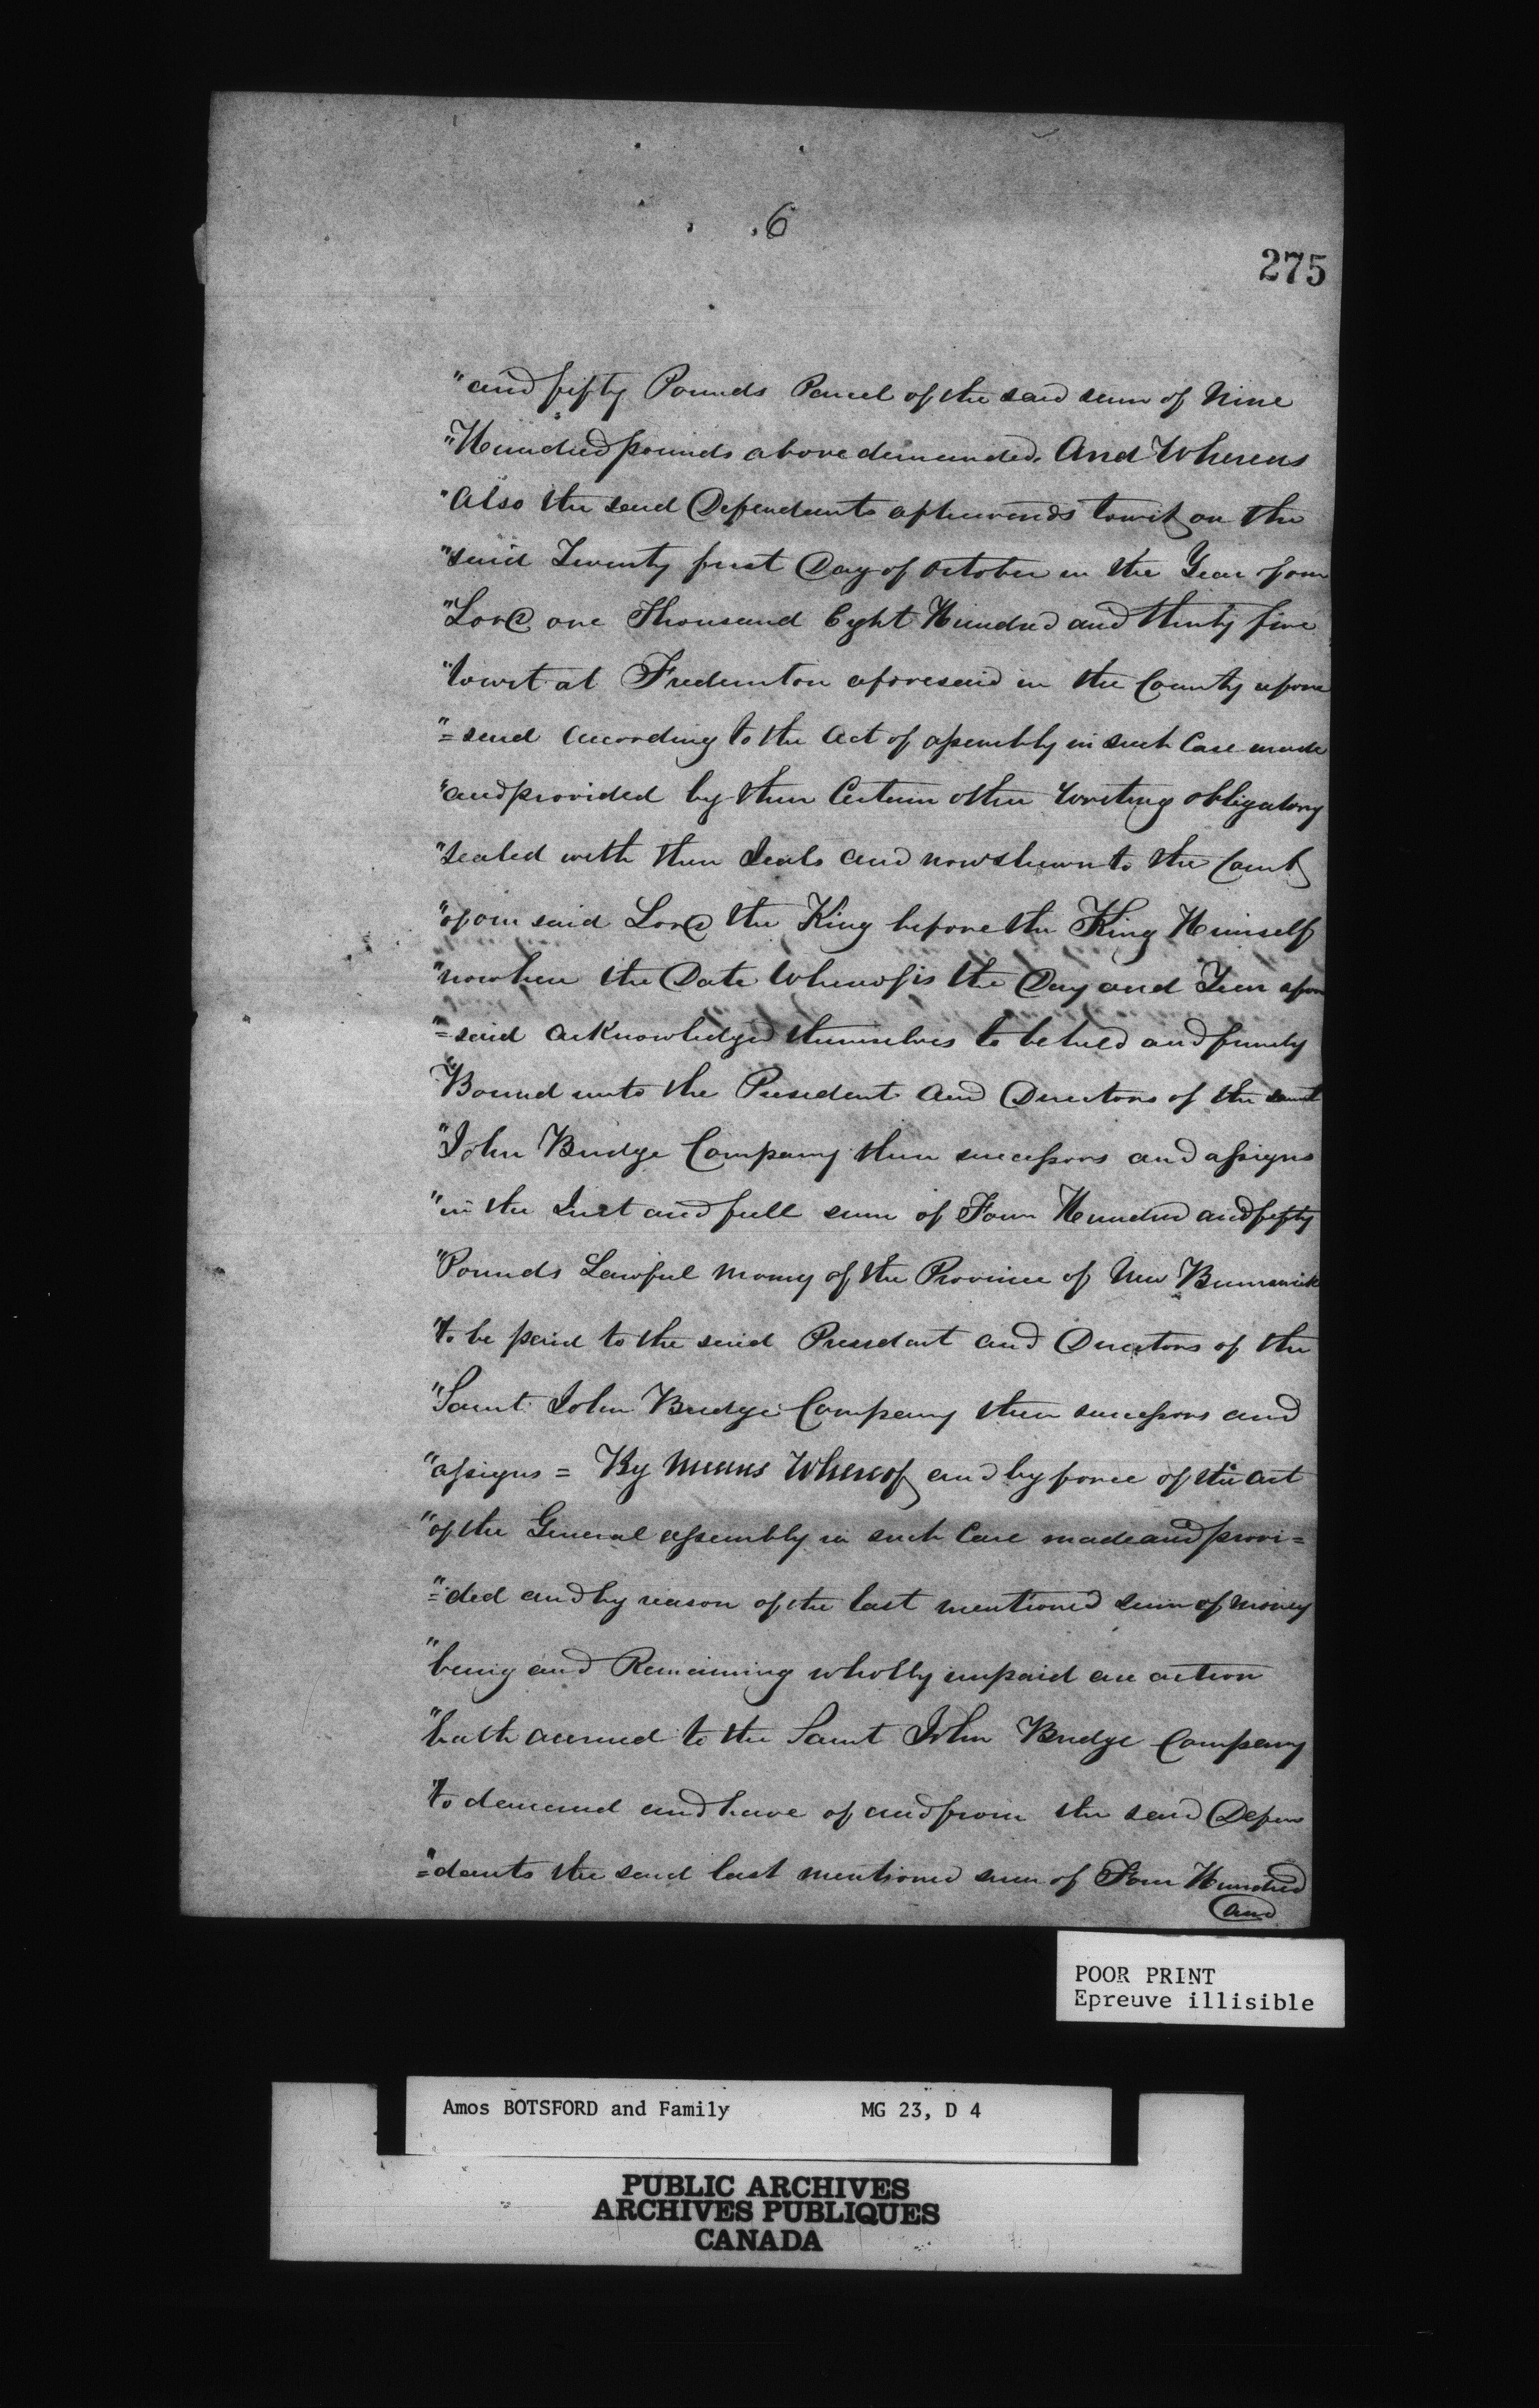 6
275
"and fifty Pounds Parcel of the said sum of Nine
"Hundred pounds above demanded. And Whereas
"Also the said Defendants afterwards towit on the
"said Twenty first Day of October in the Year of our
"Lord one Thousand Eight Hundred and thirty five
"towit at Fredericton aforesaid in the County afore
"=said according to the Act of assembly in such Case made
"and provided by their Certain other Writing obligatory
"sealed with their Seals and now shewn to the Court
"of our said Lord the King before the King Himself
"now here the Date Whereof is the Day and Year afore
"=said acknowledged themselves to be held and firmly
"Bound unto the President and Directors of the Saint
"John Bridge Company their successors and assigns
"in the Just and full sum of Four Hundred and fifty
"Pounds Lawful money of the Province of New Brunswick
"to be paid to the said President and Directors of the
"Saint John Bridge Company their successors and
"assigns = By Means Whereof and by force of the act
"of the General assembly in such Case made and provi=
"=ded and by reason of the last mentioned sum of money
"being and Remaining wholly unpaid an action
"hath accrued to the Saint John Bridge Company
"to demand and have of and from the said Defen
"=dants the said last mentioned sum of Four Hundred
and
POOR PRINT
Epreuve illisible
Amos BOTSFORD and Family MG 23, D 4
PUBLIC ARCHIVES
ARCHIVES PUBLIQUES
CANADA